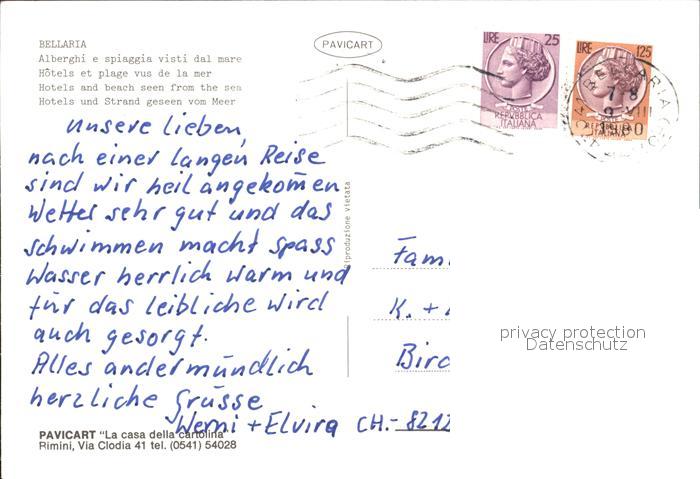 BELLARIA
Alberghi e spiaggia visti dal mare
Hôtels et plage vus de la mer
Hotels and beach seen from the sea
Hotels und Strand geseen vom Meer
PAVICART
LIRE 25
REPVBBLICA
ITALIANA
LIRE 125
ITALIANA
1980
Riproduzione vietata
unsere lieben,
nach einer langen Reise
sind wir heil angekom̄en
Wetter sehr gut und das
schwimmen macht spass
Wasser herrlich warm und
für das leibliche wird
auch gesorgt.
Alles andermündlich
herzliche Grüsse
Werni + Elvira
Fam.
K. +
Birc
CH.- 8212
privacy protection
Datenschutz
PAVICART "La casa della cartolina"
Rimini, Via Clodia 41 tel. (0541) 54028